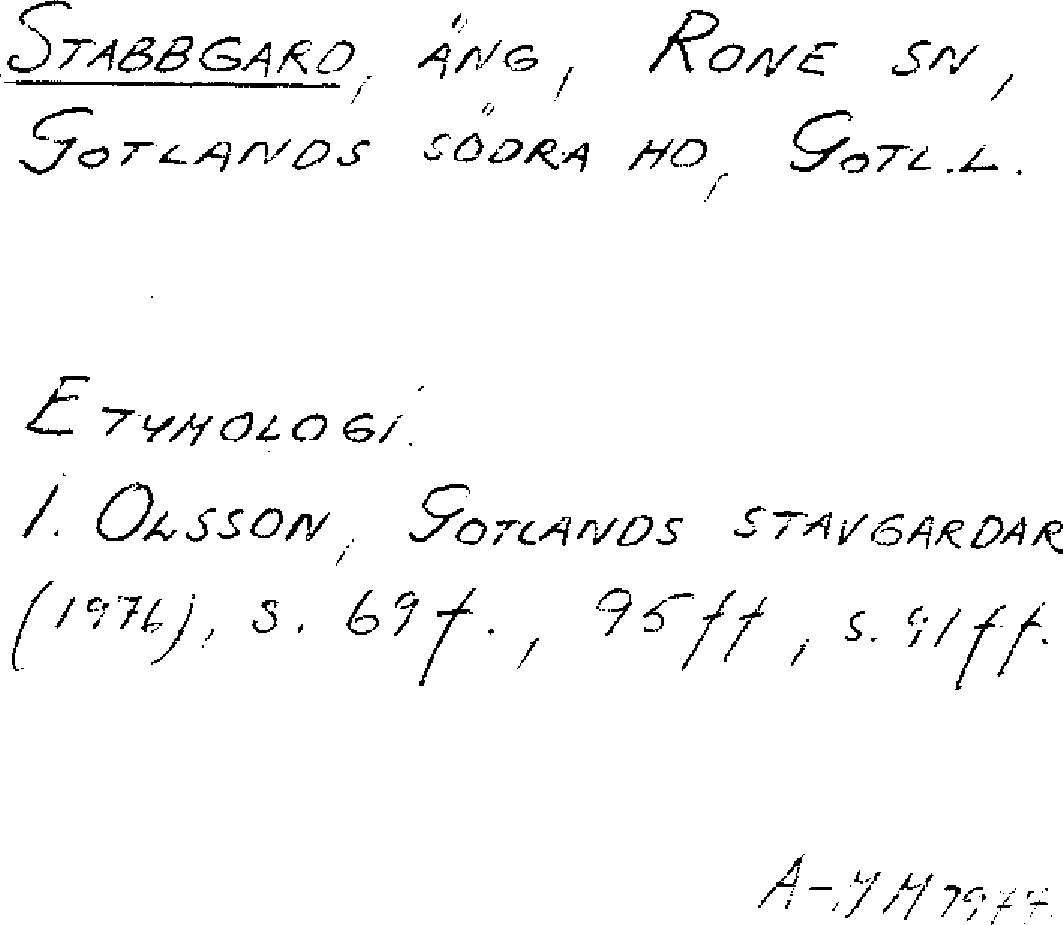 STABBGARD, ÄNG, RONE SN,
GOTLANDS SÖDRA HD, GOTL.L.
ETYMOLOGI.
I. OLSSON, GOTLANDS STAVGARDAR
(1976), S. 69 f., 95 ff, S. 91 ff.
A-MM 1977.